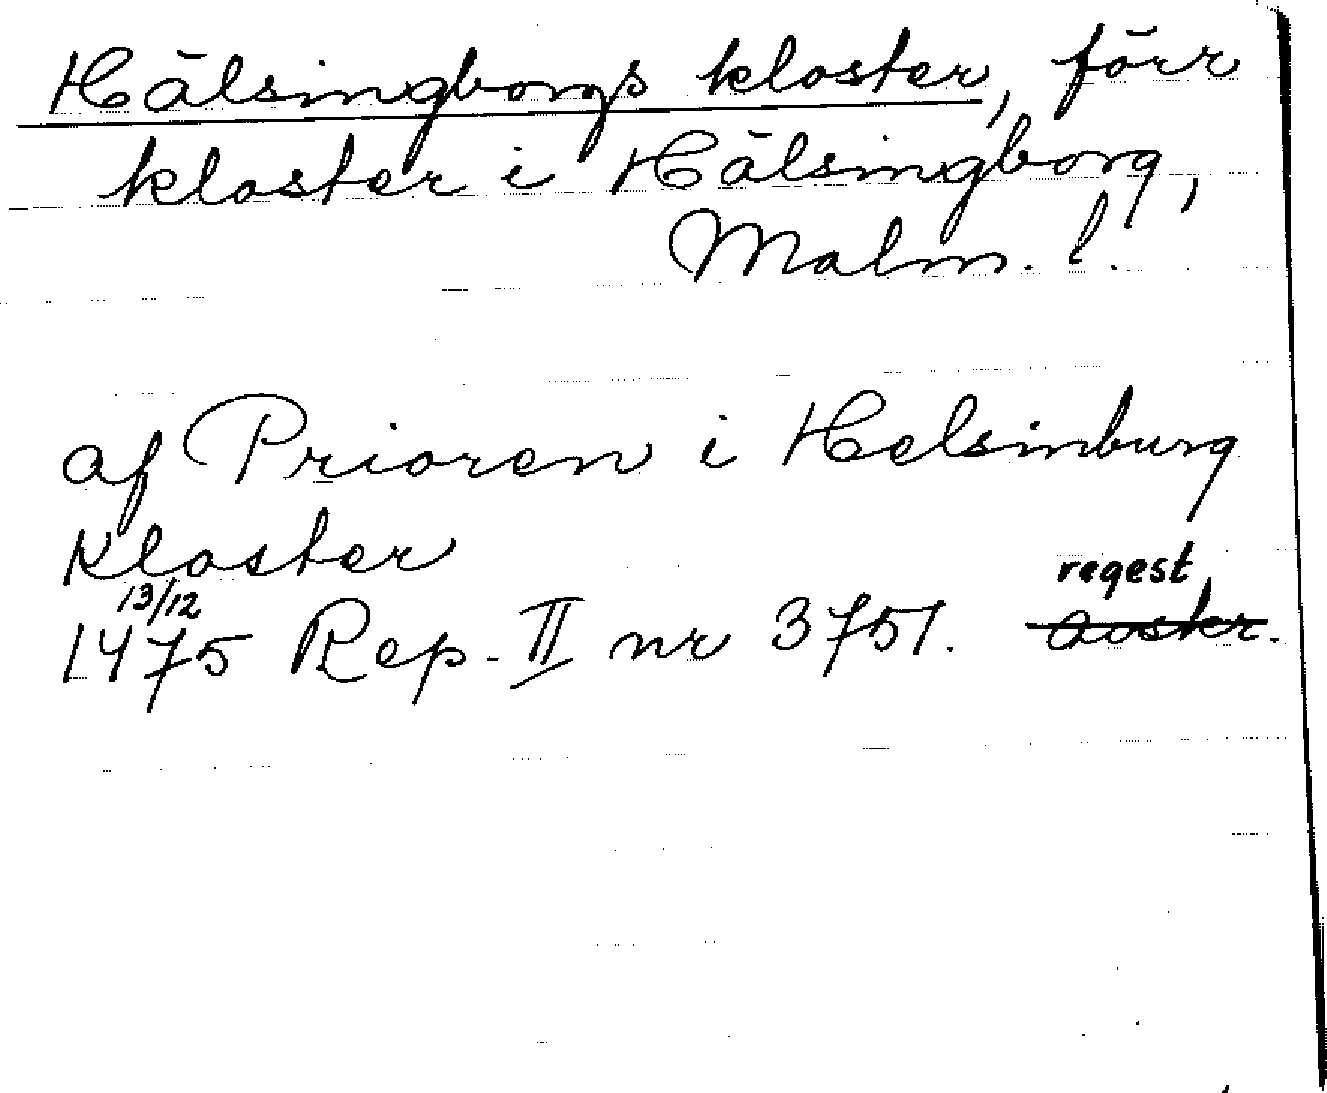 Hälsingborgs kloster, förr
kloster i Hälsingborg,
Malm. l.
af Prioren i Helsinburg
Kloster
13/12
regest
1475 Rep. II nr 3751. avskr.